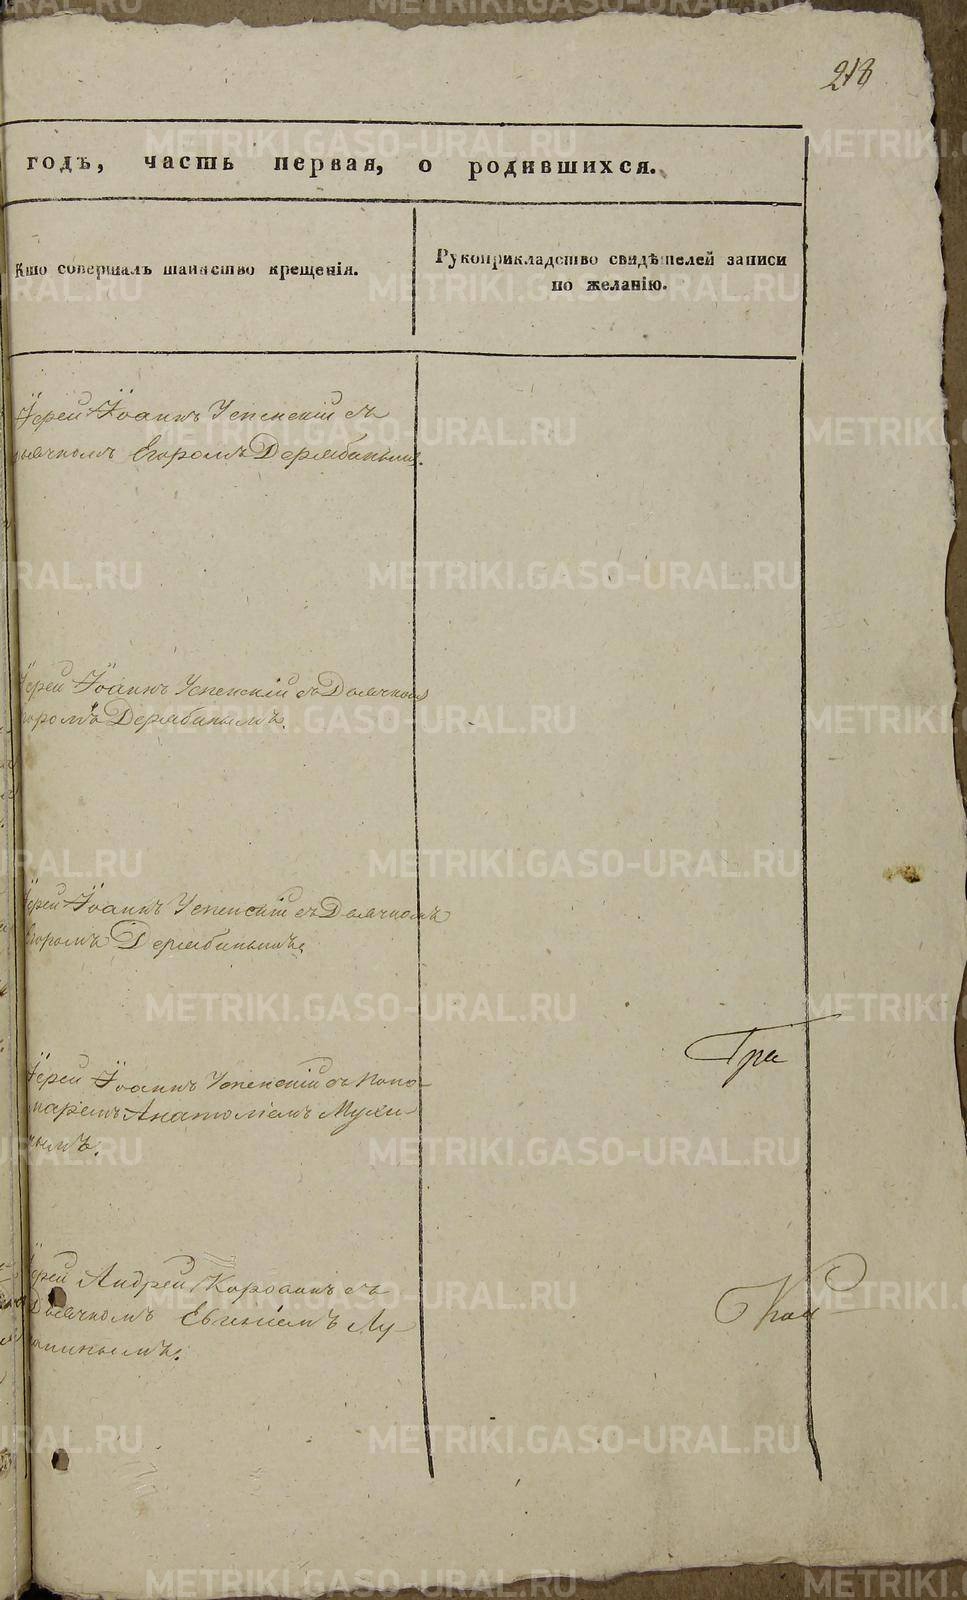 218
годъ, часть первая, о родившихся.
Кто совершалъ таинство крещенія.
Рукоприкладство свидѣтелей записи
по желанію.
Іерей Іоаннъ Успенскій съ
дьячкомъ Егоромъ Дерябинымъ.
Іерей Іоаннъ Успенскій съ Дьячкомъ
Егоромъ Дерябинымъ.
Іерей Іоаннъ Успенскій съ Дьячкомъ
Егоромъ Дерябинымъ.
Іерей Іоаннъ Успенскій съ Поно-
маремъ Анатоліемъ Мухи-
нымъ.
Гри
Іерей Андрей съ
Дьячкомъ Евгеніемъ
METRIKI.GASO-URAL.RU